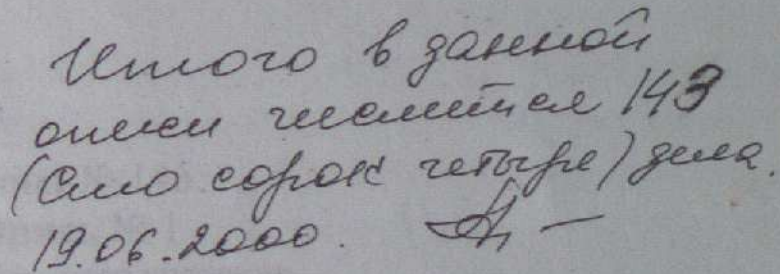 Итого в данной
описи числится 143
(Сто сорок четыре) дела.
19.06.2000.